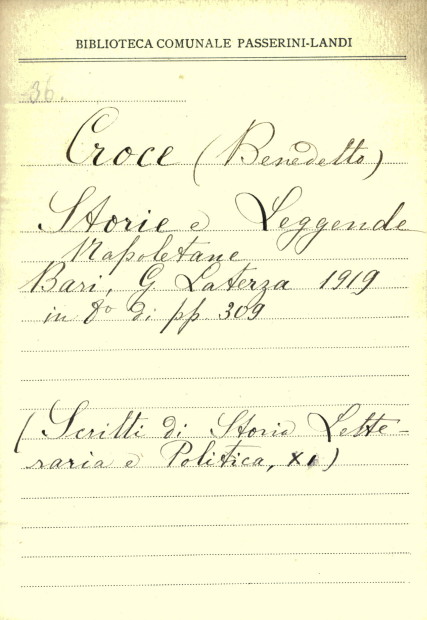 BIBLIOTECA COMUNALE PASSERINI-LANDI
36.
Croce (Benedetto)
Storie e Leggende
Napoletane
Bari, G. Laterza 1919
in 8º di pp. 309
(Scritti di Storia Lette-
raria e Politica, XI)